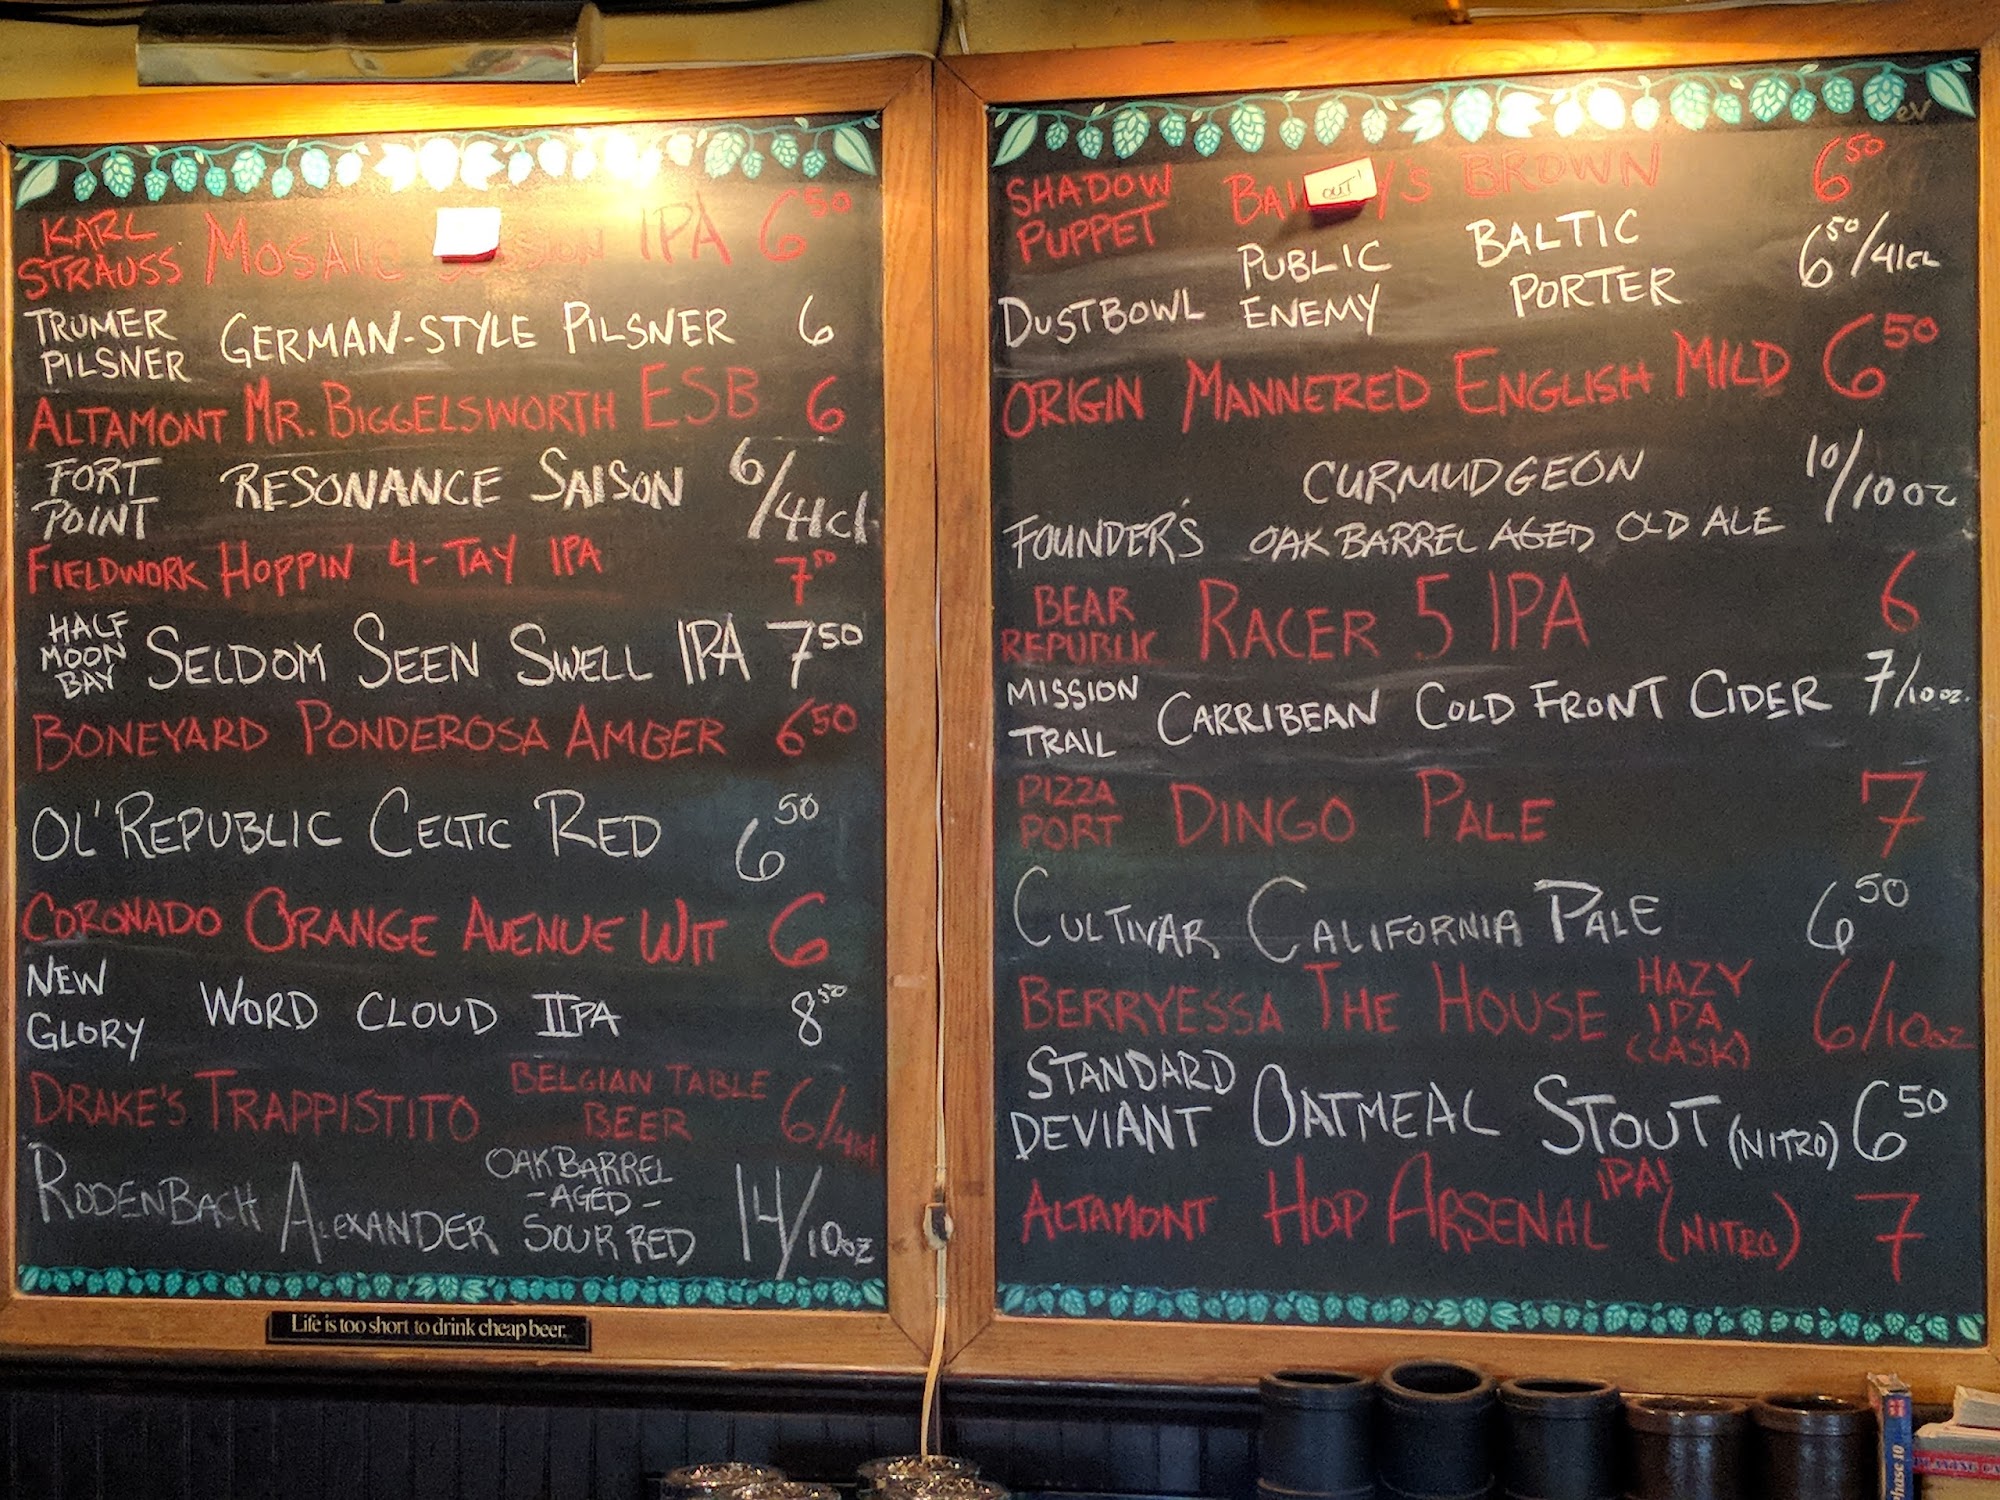 KARL STRAUSS MOSAIC SESSION IPA 6 50
TRUMER PILSNER GERMAN-STYLE PILSNER 6
ALTAMONT MR. BIGGELSWORTH ESB 6
FORT POINT RESONANCE SAISON 6/41cl
FIELDWORK HOPPIN 4-TAY IPA 7 50
HALF MOON BAY SELDOM SEEN SWELL IPA 7 50
BONEYARD PONDEROSA AMBER 6 50
OL' REPUBLIC CELTIC RED 6 50
CORONADO ORANGE AVENUE WIT 6
NEW GLORY WORD CLOUD IIPA 8 50
DRAKE'S TRAPPISTITO BELGIAN TABLE BEER 6/41cl
RODENBACH ALEXANDER OAK BARREL -AGED- SOUR RED 14/10oz
Life is too short to drink cheap beer.
SHADOW PUPPET OUT! BROWN 6 50
DUSTBOWL PUBLIC ENEMY BALTIC PORTER 6 50/41cl
ORIGIN MANNERED ENGLISH MILD 6 50
FOUNDER'S CURMUDGEON OAK BARREL AGED OLD ALE 10/10oz
BEAR REPUBLIC RACER 5 IPA 6
MISSION TRAIL CARRIBEAN COLD FRONT CIDER 7/10oz.
PIZZA PORT DINGO PALE 7
CULTIVAR CALIFORNIA PALE 6 50
BERRYESSA THE HOUSE HAZY IPA (CASK) 6/10oz
STANDARD DEVIANT OATMEAL STOUT (NITRO) 6 50
ALTAMONT HOP ARSENAL IPA! (NITRO) 7
Phase 10